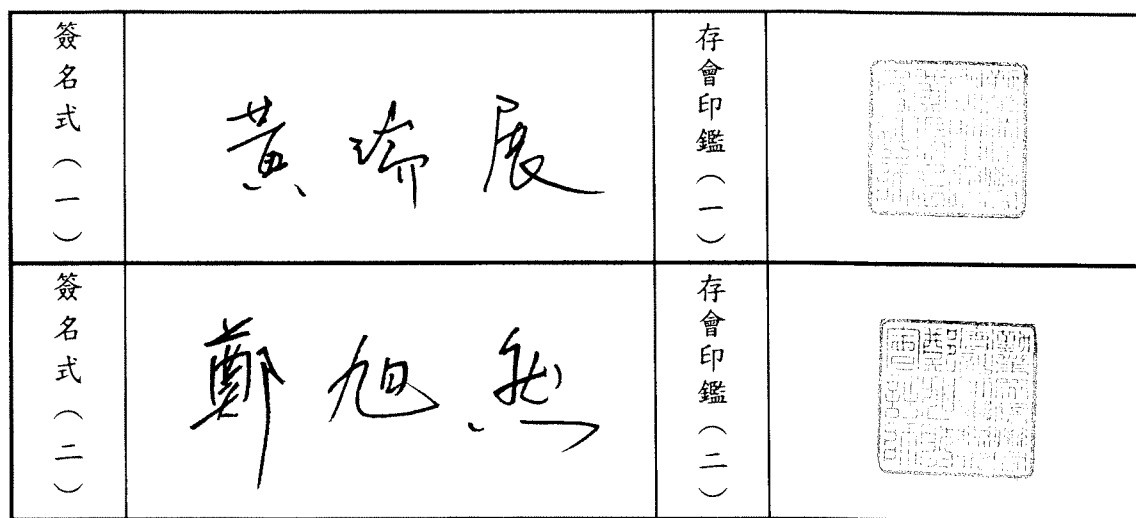 簽名式（一）
黃瑞展
存會印鑑（一）
簽名式（二）
鄭旭然
存會印鑑（二）